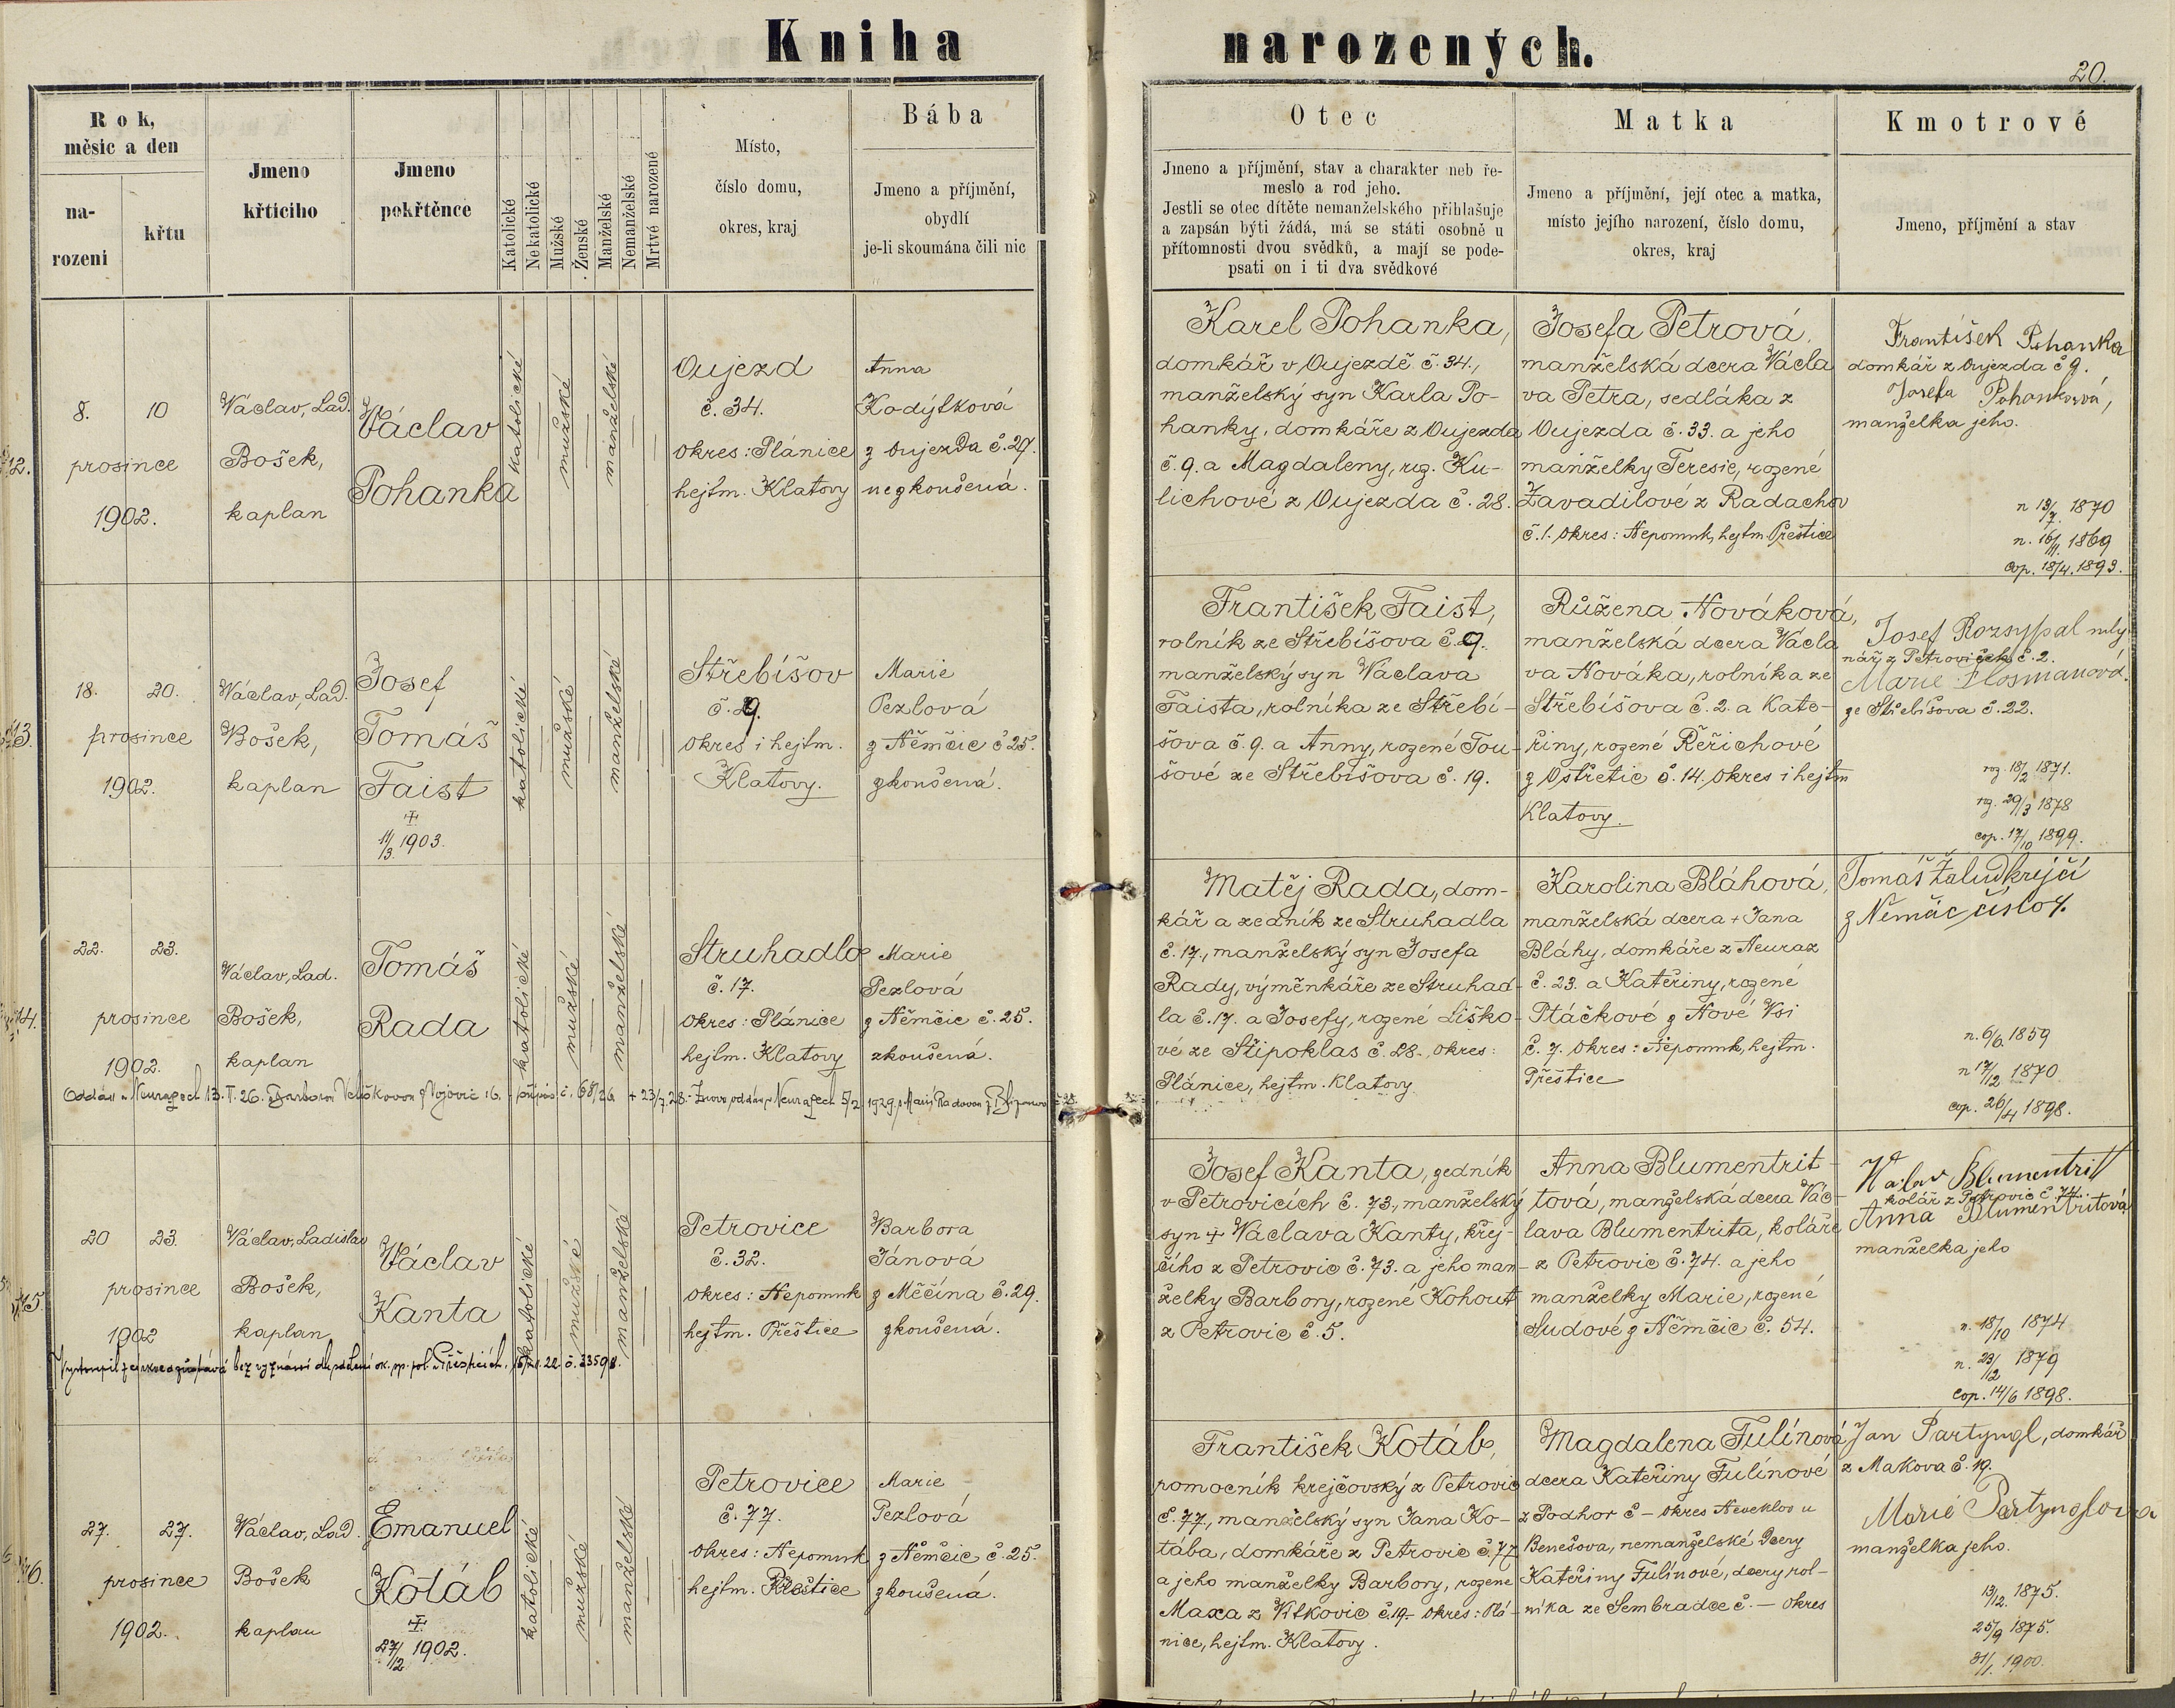 Kniha narozených.
20.
Rok,
měsíc a den
na-
rození
křtu
Jmeno
křtícího
Jmeno
pokřtěnce
Katolické
Nekatolické
Mužské
Ženské
Manželské
Nemanželské
Mrtvé narozené
Místo,
číslo domu,
okres, kraj
Bába
Jmeno a příjmění,
obydlí
je-li skoumána čili nic
Otec
Jmeno a příjmění, stav a charakter neb ře-
meslo a rod jeho.
Jestli se otec dítěte nemanželského přihlašuje
a zapsán býti žádá, má se státi osobně u
přítomnosti dvou svědků, a mají se pode-
psati on i ti dva svědkové
Matka
Jmeno a příjmění, její otec a matka,
místo jejího narození, číslo domu,
okres, kraj
Kmotrové
Jmeno, příjmění a stav
12.
8. 10
prosince
1902.
Václav, Lad.
Bošek,
kaplan
Václav
Pohanka
katolické
mužské
manželské
Oujezd
č. 34.
okres: Plánice
hejtm. Klatovy
Anna
Kodýtková
z Oujezda č. 27.
nezkoušená.
Karel Pohanka,
domkář v Oujezdě č. 34.,
manželský syn Karla Po-
hanky, domkáře z Oujezda
č. 9. a Magdaleny, roz. Ku-
lichové z Oujezda č. 28.
Josefa Petrová,
manželská dcera Václa
va Petra, sedláka z
Oujezda č. 33. a jeho
manželky Teresie, rozené
Zavadilové z Radachov
č. 1. okres: Nepomuk, hejtm. Přeštice
František Pohanka
domkář z Oujezda č 9.
Josefa Pohanková,
manželka jeho.
n 13/7. 1870
n. 16/11. 1869
cop. 18/4. 1893.
13.
18. 20.
prosince
1902.
Václav, Lad.
Bošek,
kaplan
Josef
Tomáš
Faist
11/3. 1903.
katolické
mužské
manželské
Střebíšov
č. 9.
okres i hejtm.
Klatovy.
Marie
Pezlová
z Němčic č 25.
zkoušená.
František Faist,
rolník ze Střebíšova č. 9.
manželský syn Václava
Faista, rolníka ze Střebí-
šova č. 9. a Anny, rozené Tou-
šové ze Střebíšova č. 19.
Růžena Nováková,
manželská dcera Václa
va Nováka, rolníka ze
Střebíšova č. 2. a Kate-
řiny, rozené Řeřichové
z Ostřetic č. 14. okres i hejtm
Klatovy.
Josef Rozsypal mly
nář z Petroviček č. 2.
Marie Flosmanová.
ze Střebíšova č. 22.
roz. 18/2 1871.
roz. 29/3 1878
cop. 17/10 1899.
14.
22. 23.
prosince
1902.
Václav, Lad.
Bošek,
kaplan
Tomáš
Rada
katolické
mužské
manželské
Struhadlo
č. 17.
okres: Plánice
hejtm. Klatovy
Marie
Pezlová
z Němčic č. 25.
zkoušená.
Oddán v Neurazech 13. I. 26. s Barborou
Matěj Rada, dom-
kář a zedník ze Struhadla
č. 17., manželský syn Josefa
Rady, výměnkáře ze Struhad-
la č. 17. a Josefy, rozené Liško-
vé ze Štipoklas č. 28., okres:
Plánice, hejtm. Klatovy
Karolina Bláhová,
manželská dcera + Jana
Bláhy, domkáře z Neuraz
č. 23. a Kateřiny, rozené
Ptáčkové z Nové Vsi
č. 7. okres: Nepomuk, hejtm.
Přeštice
Tomáš Žalud krejčí
z Nemčic číslo 4.
n. 6/6. 1859
n 17/2 1870
cop. 26/4 1898.
15.
20 23.
prosince
1902
Václav, Ladislav
Bošek,
kaplan
Václav
Kanta
katolické
mužské
manželské
Petrovice
č. 32.
okres: Nepomuk
hejtm. Přeštice
Barbora
Jánová
z Měčína č. 29.
zkoušená.
Vystoupil z církve a zůstává bez vyznání dle sdělení ok. sp. pol. v Přešticích,
Josef Kanta, zedník
v Petrovicích č. 73., manželský
syn + Václava Kanty, krej-
čího z Petrovic č. 73. a jeho man-
želky Barbory, rozené Kohout
z Petrovic č. 5.
Anna Blumentrit-
tová, manželská dcera Vác-
lava Blumentrita, koláře
z Petrovic č. 74. a jeho
manželky Marie, rozené
Sudové z Němčic č. 54.
Václav Blumentritt
kolář z Petrovic č. 74.
Anna Blumentritová
manželka jeho
n. 18/10 1874
n. 23/2 1879
cop. 14/6 1898.
16.
27. 27.
prosince
1902.
Václav, Lad.
Bošek
kaplan
Emanuel
Kotáb
27/12 1902.
katolické
mužské
manželské
Petrovice
č. 77.
okres: Nepomuk
hejtm. Přeštice
Marie
Pezlová
z Němčic č. 25.
zkoušená.
František Kotáb,
pomocník krejčovský z Petrovic
č. 77, manželský syn Jana Ko-
tába, domkáře z Petrovic č. 77
a jeho manželky Barbory, rozené
Maxa z Vítkovic č. 19- okres: Plá-
nice, hejtm. Klatovy.
Magdalena Fulínová
dcera Kateřiny Fulínové
z Podhor č – okres Neveklov u
Benešova, nemanželské dcery
Kateřiny Fulínové, dcery rol-
níka ze Sembradce č. — okres
Jan Partyngl, domkář
z Makova č. 19.
Marie Partynglova
manželka jeho.
13/12. 1875.
25/9 1875.
31/1. 1900.